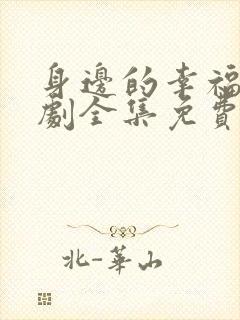 身邊的幸福
劇全集免費
北-華山